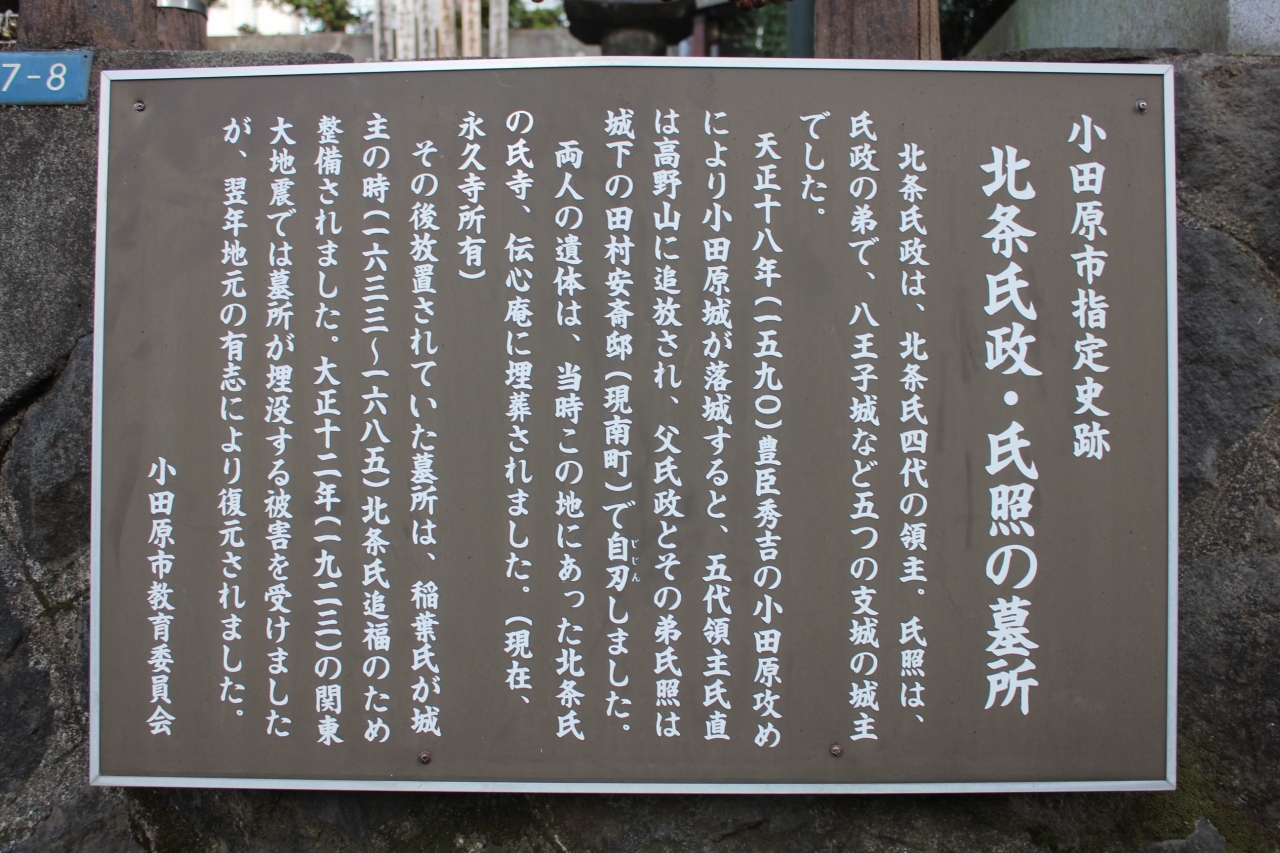 小田原市指定史跡
北条氏政・氏照の墓所
北条氏政は、北条氏四代の領主。氏照は、
氏政の弟で、八王子城など五つの支城の城主
でした。
天正十八年(一五九〇)豊臣秀吉の小田原攻め
により小田原城が落城すると、五代領主氏直
は高野山に追放され、父氏政とその弟氏照は
城下の田村安斎邸(現南町)で自刃しました。
じじん
両人の遺体は、当時この地にあった北条氏
の氏寺、伝心庵に埋葬されました。(現在、
永久寺所有)
その後放置されていた墓所は、稲葉氏が城
主の時(一六三三〜一六八五)北条氏追福のため
整備されました。大正十二年(一九二三)の関東
大地震では墓所が埋没する被害を受けました
が、翌年地元の有志により復元されました。
小田原市教育委員会
7-8